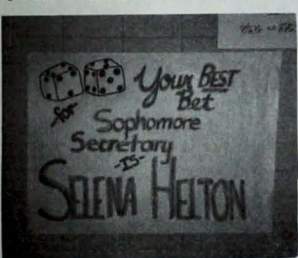 Your BEST
Bet
-for-
Sophomore
Secretary
-IS-
SELENA HELTON